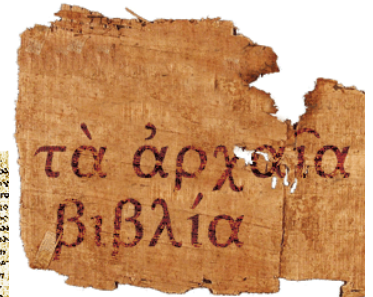 τὰ ἀρχαῖα
βιβλία